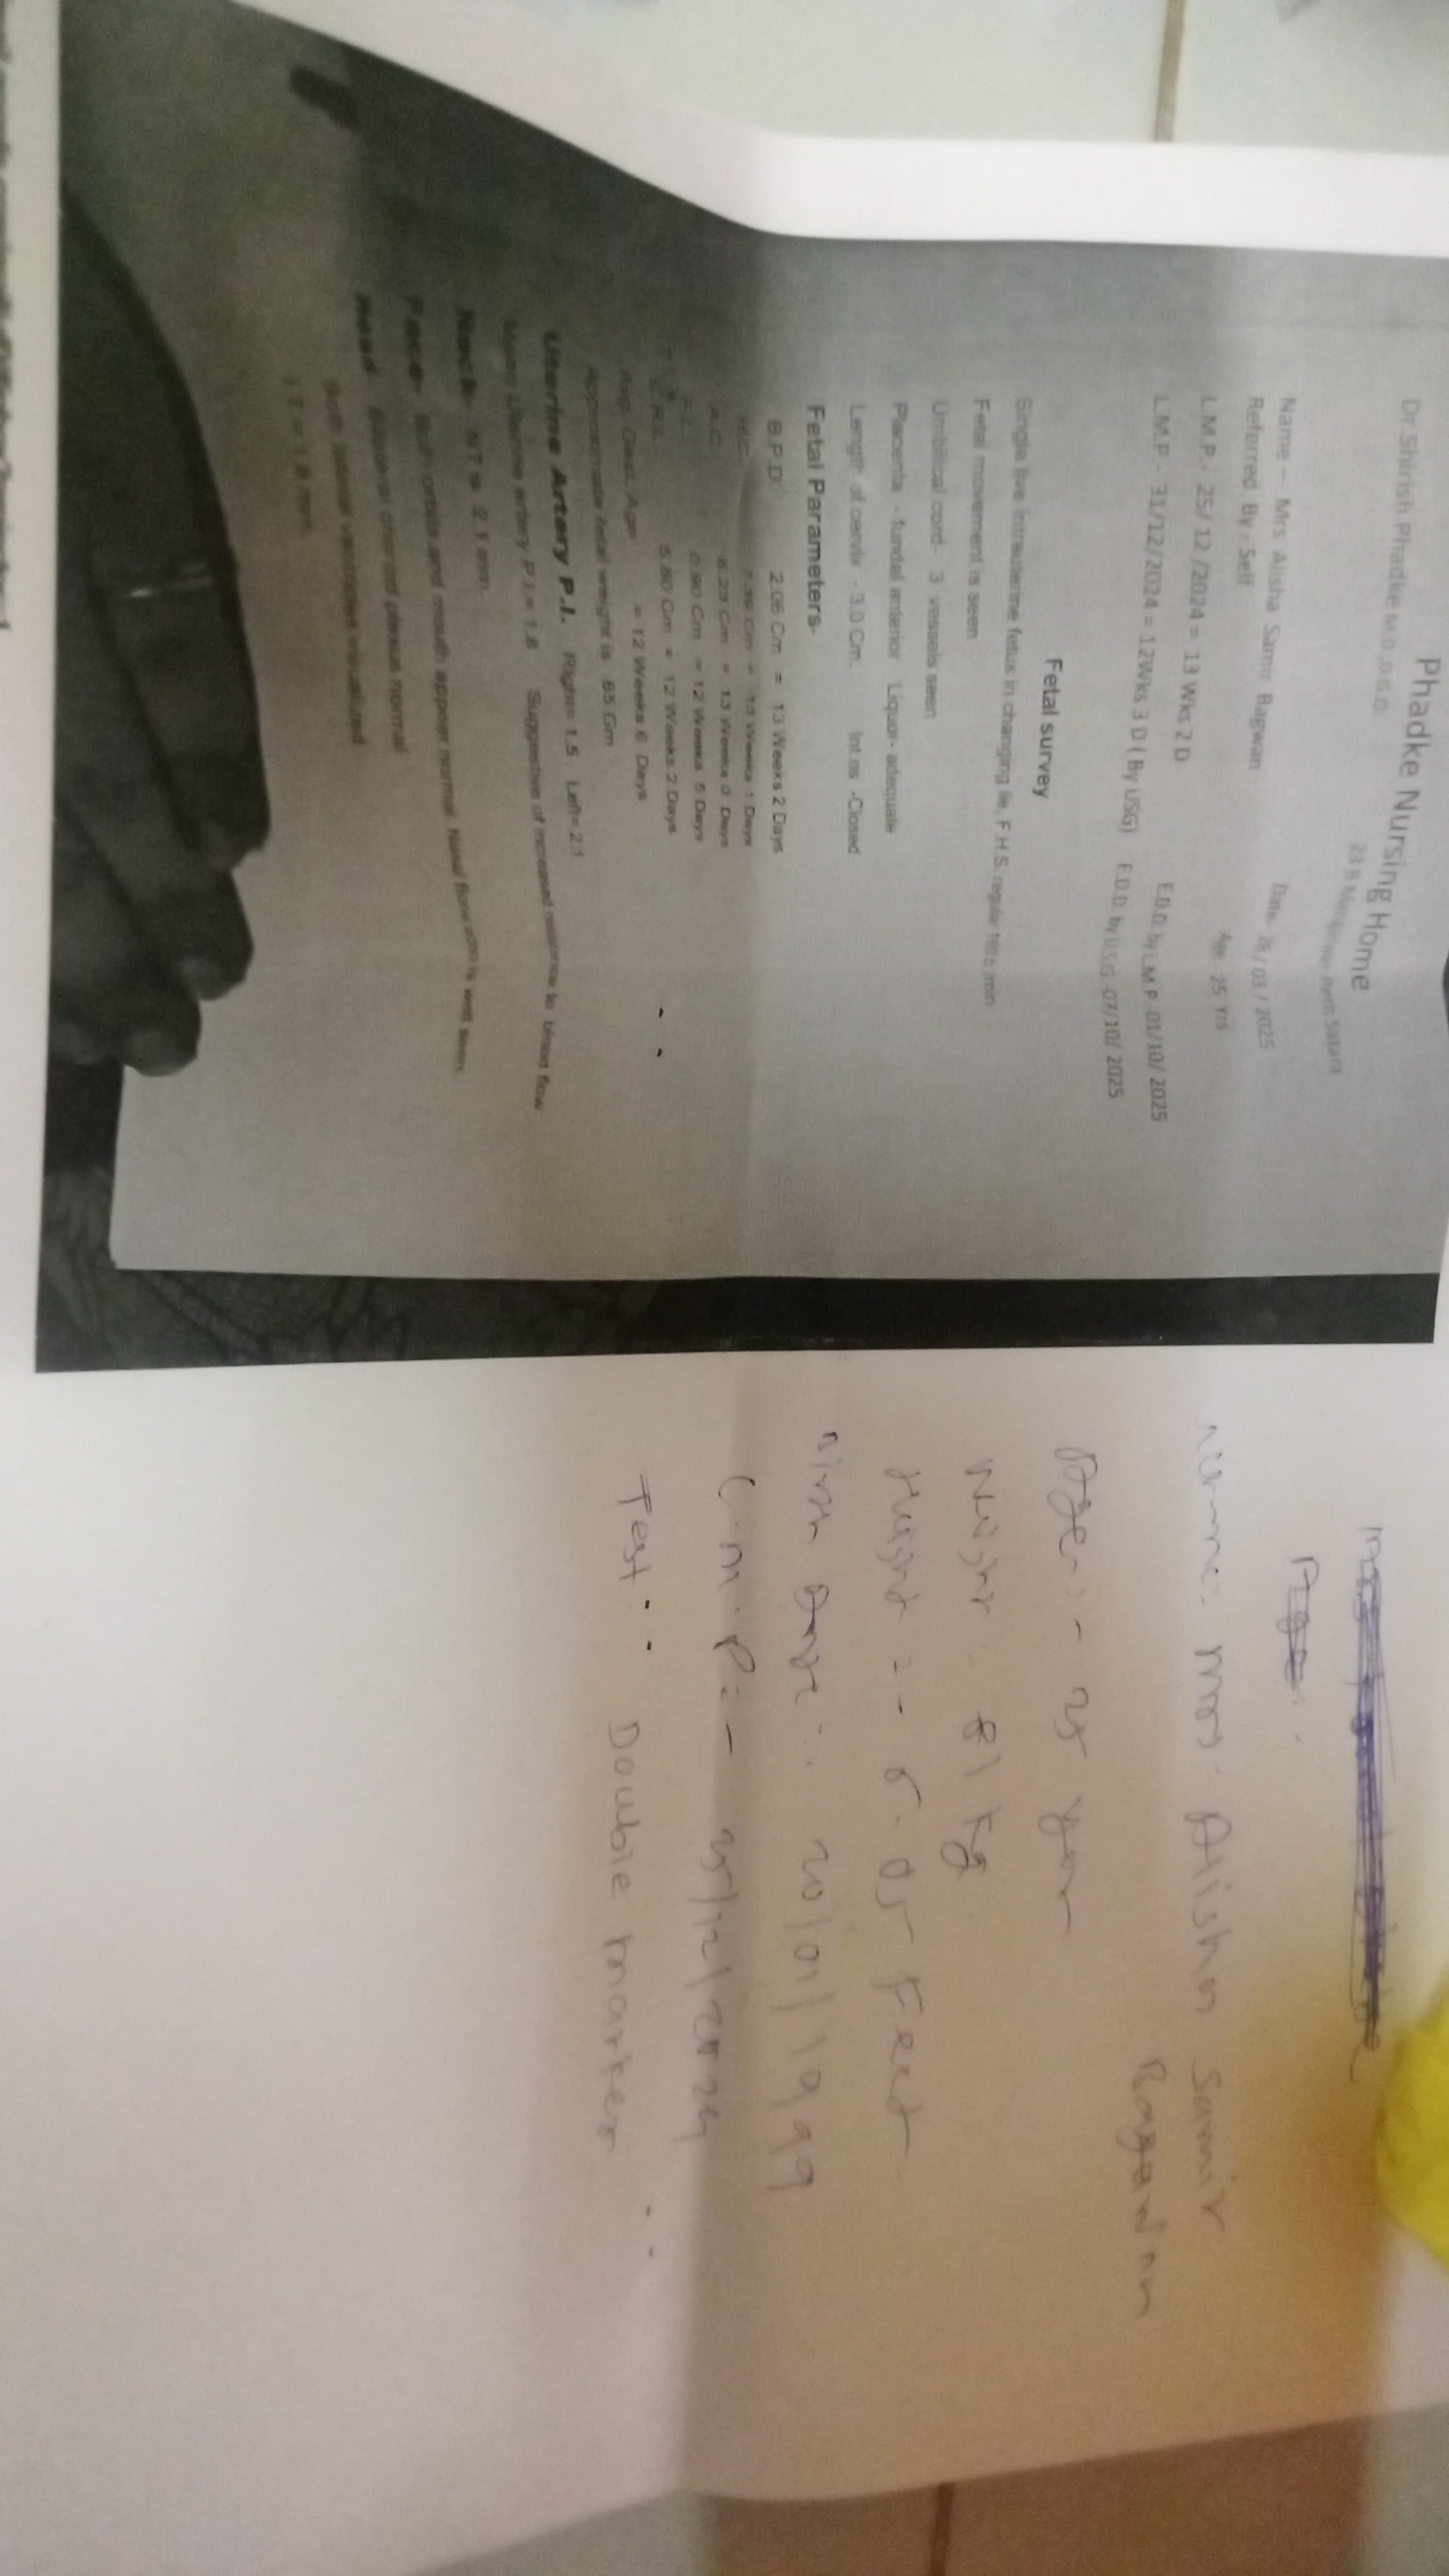 Phadke Nursing Home
Dr.Shirish Phadke M.D.,D.G.O.
23 B Peth Satara
Name – Mrs Alisha Samir Bagwan
Date- /03 / 2025
Referred By - Self
Age 25 Yrs
L.M.P.- 25/ 12 /2024 = 13 Wks 2 D
E.D.D. by L.M.P.-01/10/ 2025
L.M.P.- 31/12/2024 = 12Wks 3 D ( By USG)
E.D.D. by U.S.G.-07/10/ 2025
Fetal survey
Single live intrauterine fetus in changing lie, F.H.S. regular /min
Fetal movement is seen
Umbilical cord- 3 vessels seen
Placenta -fundal anterior Liquor- adequate
Length of cervix - 3.0 Cm. Int.os -Closed
Fetal Parameters-
B.P.D 2.06 Cm = 13 Weeks 2 Days
H.C. Cm = 13 Weeks 1 Days
A.C. 6.23 Cm = 13 Weeks 0 Days
F.L. 0.90 Cm = 12 Weeks 5 Days
C.R.L. 5.80 Cm = 12 Weeks 2 Days
Avg. Gest. Age = 12 Weeks 6 Days
Approximate fetal weight is 65 Gm
Uterine Artery P.I. Right= 1.5 Left= 2.1
Mean Uterine artery P.I.= 1.8 Suggestive of to blood flow
Neck- NT is 2.1 mm
Face- Both orbits and mouth appear normal. Nasal Bone is well seen.
Head- choroid plexus normal
ventricles visualized
I T = 1.8 mm
Age:
Name: Mrs. Alisha Samir
Bagawan
Age:- 25 year
Weight. 81 Kg.
Height :- 5.05 Feet
Birth Date:. 20/01/1999
L.M.P:- 25/12/2024
Test:. Double marker